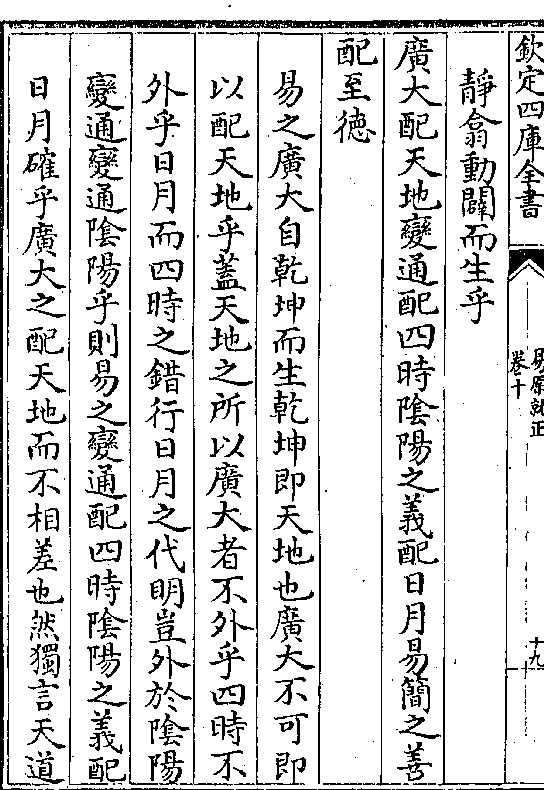 欽定四庫全書
易原就正
卷十
十九
靜翕動闢而生乎
廣大配天地變通配四時隂陽之義配日月易簡之善
配至德
易之廣大自乾坤而生乾坤即天地也廣大不可即
以配天地乎蓋天地之所以廣大者不外乎四時不
外乎日月而四時之錯行日月之代明豈外於隂陽
變通變通隂陽乎則易之變通配四時隂陽之義配
日月確乎廣大之配天地而不相差也然獨言天道